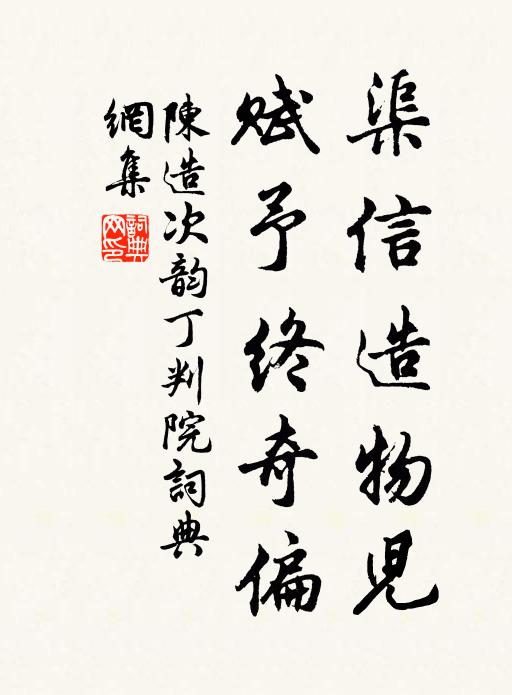 渠信造物児
賦予終奇偏
陳造次韵丁判院詞典
網集
詞典網印